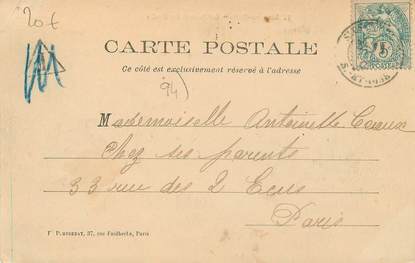 20€
CARTE POSTALE
Ce côté est exclusivement réservé à l'adresse
94)
Mademoiselle Antoinette
Chez ses parents
33 rue des 2 Ecus
Paris
37, rue Faidherbe, Paris